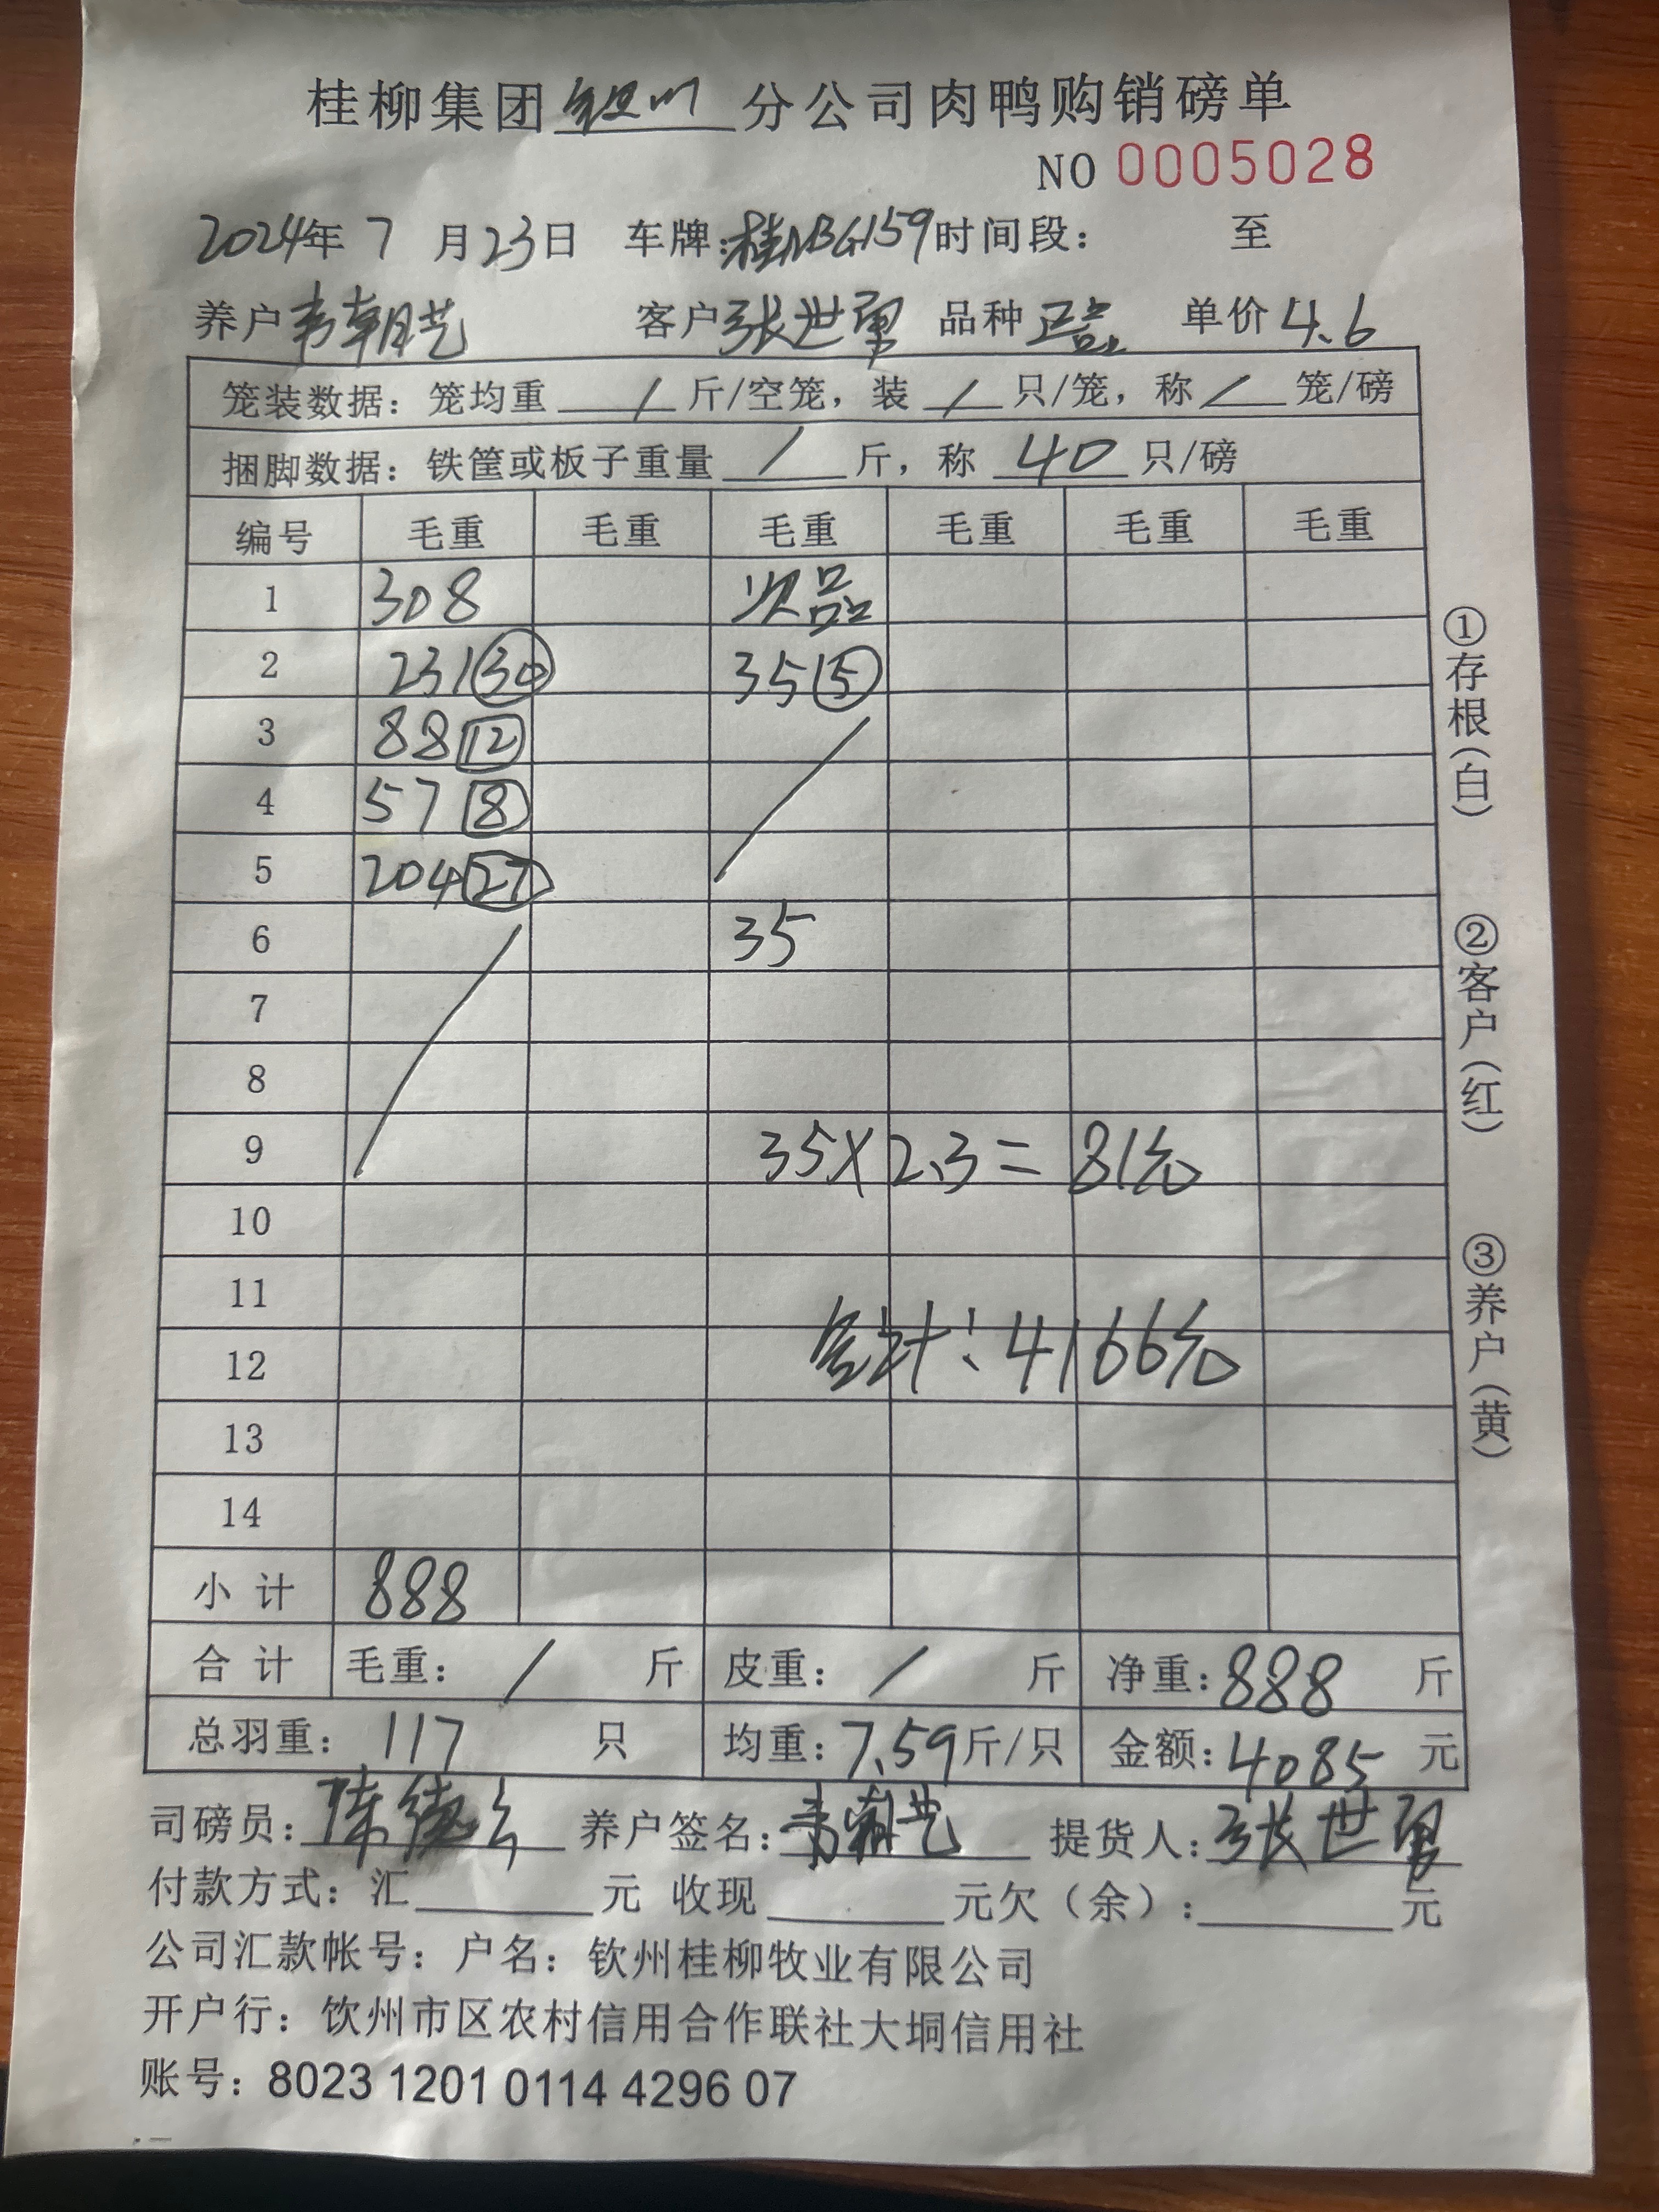 桂柳集团钦州分公司肉鸭购销磅单
NO 0005028
2024年 7 月23日 车牌:桂NBG159时间段: 至
养户韦朝艺 客户张世勇 品种 单价4.6
笼装数据:笼均重 / 斤/空笼,装 / 只/笼,称 / 笼/磅
捆脚数据:铁筐或板子重量 / 斤,称 40 只/磅
编号 毛重 毛重 毛重 毛重 毛重 毛重
1 308 次品
2 231(30) 35(5)
3 88(12)
4 57(8)
5 204(27)
6 35
7
8
9 35×2.3=81元
10
11
12 合计:4166元
13
14
小 计 888
合 计 毛重: / 斤 皮重: / 斤 净重:888 斤
总羽重: 117 只 均重:7.59斤/只 金额:4085 元
司磅员:陈 养户签名:韦朝艺 提货人:张世勇
付款方式:汇 元 收现 元欠(余): 元
公司汇款帐号:户名:钦州桂柳牧业有限公司
开户行:钦州市区农村信用合作联社大垌信用社
账号:8023 1201 0114 4296 07
①存根(白)
②客户(红)
③养户(黄)